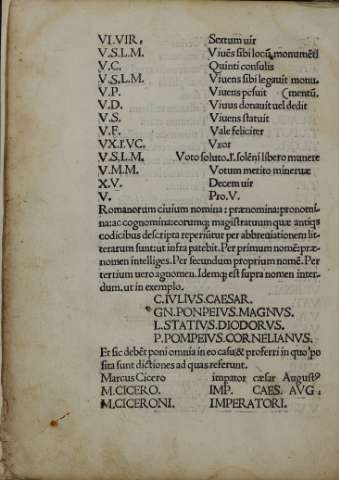 VI.VIR. Sextum uir
V.S.L.M. Viuẽs sibi locũ monumẽti
V.C. Quinti consulis
V.S.L.M. Viuens sibi legauit monu-
V.P. Viuens posuit (mentũ.
V.D. Viuus donauit uel dedit
V.S. Viuens statuit
V.F. Vale feliciter
VX.F.VC. Vxor
V.S.L.M. Voto soluto .I. solẽni libero munere
V.M.M. Votum merito mineruæ
X.V. Decem uir
V. Pro.V.
Romanorum ciuium nomina: prænomina: pronomi-
na: ac cognomina: eorumq; magistratuum quæ antiqs
codicibus descripta reperiūtur per abbreuiationem lit-
terarum sunt: ut infra patebit. Per primum nomẽ: præ-
nomen intelliges. Per secundum proprium nomẽ. Per
tertium uero agnomen. Idemq; est supra nomen inter-
dum. ut in exemplo.
C.IVLIVS.CAESAR.
GN.PONPEIVS.MAGNVS.
L.STATIVS.DIODORVS.
P.POMPEIVS.CORNELIANVS.
Et sic debẽt poni omnia in eo casu & proferri in quo 'po
sita sunt dictiones ad quas referunt.
Marcus Cicero impator cæsar August9
M.CICERO. IMP. CAES. AVG.
M.CICERONI. IMPERATORI.